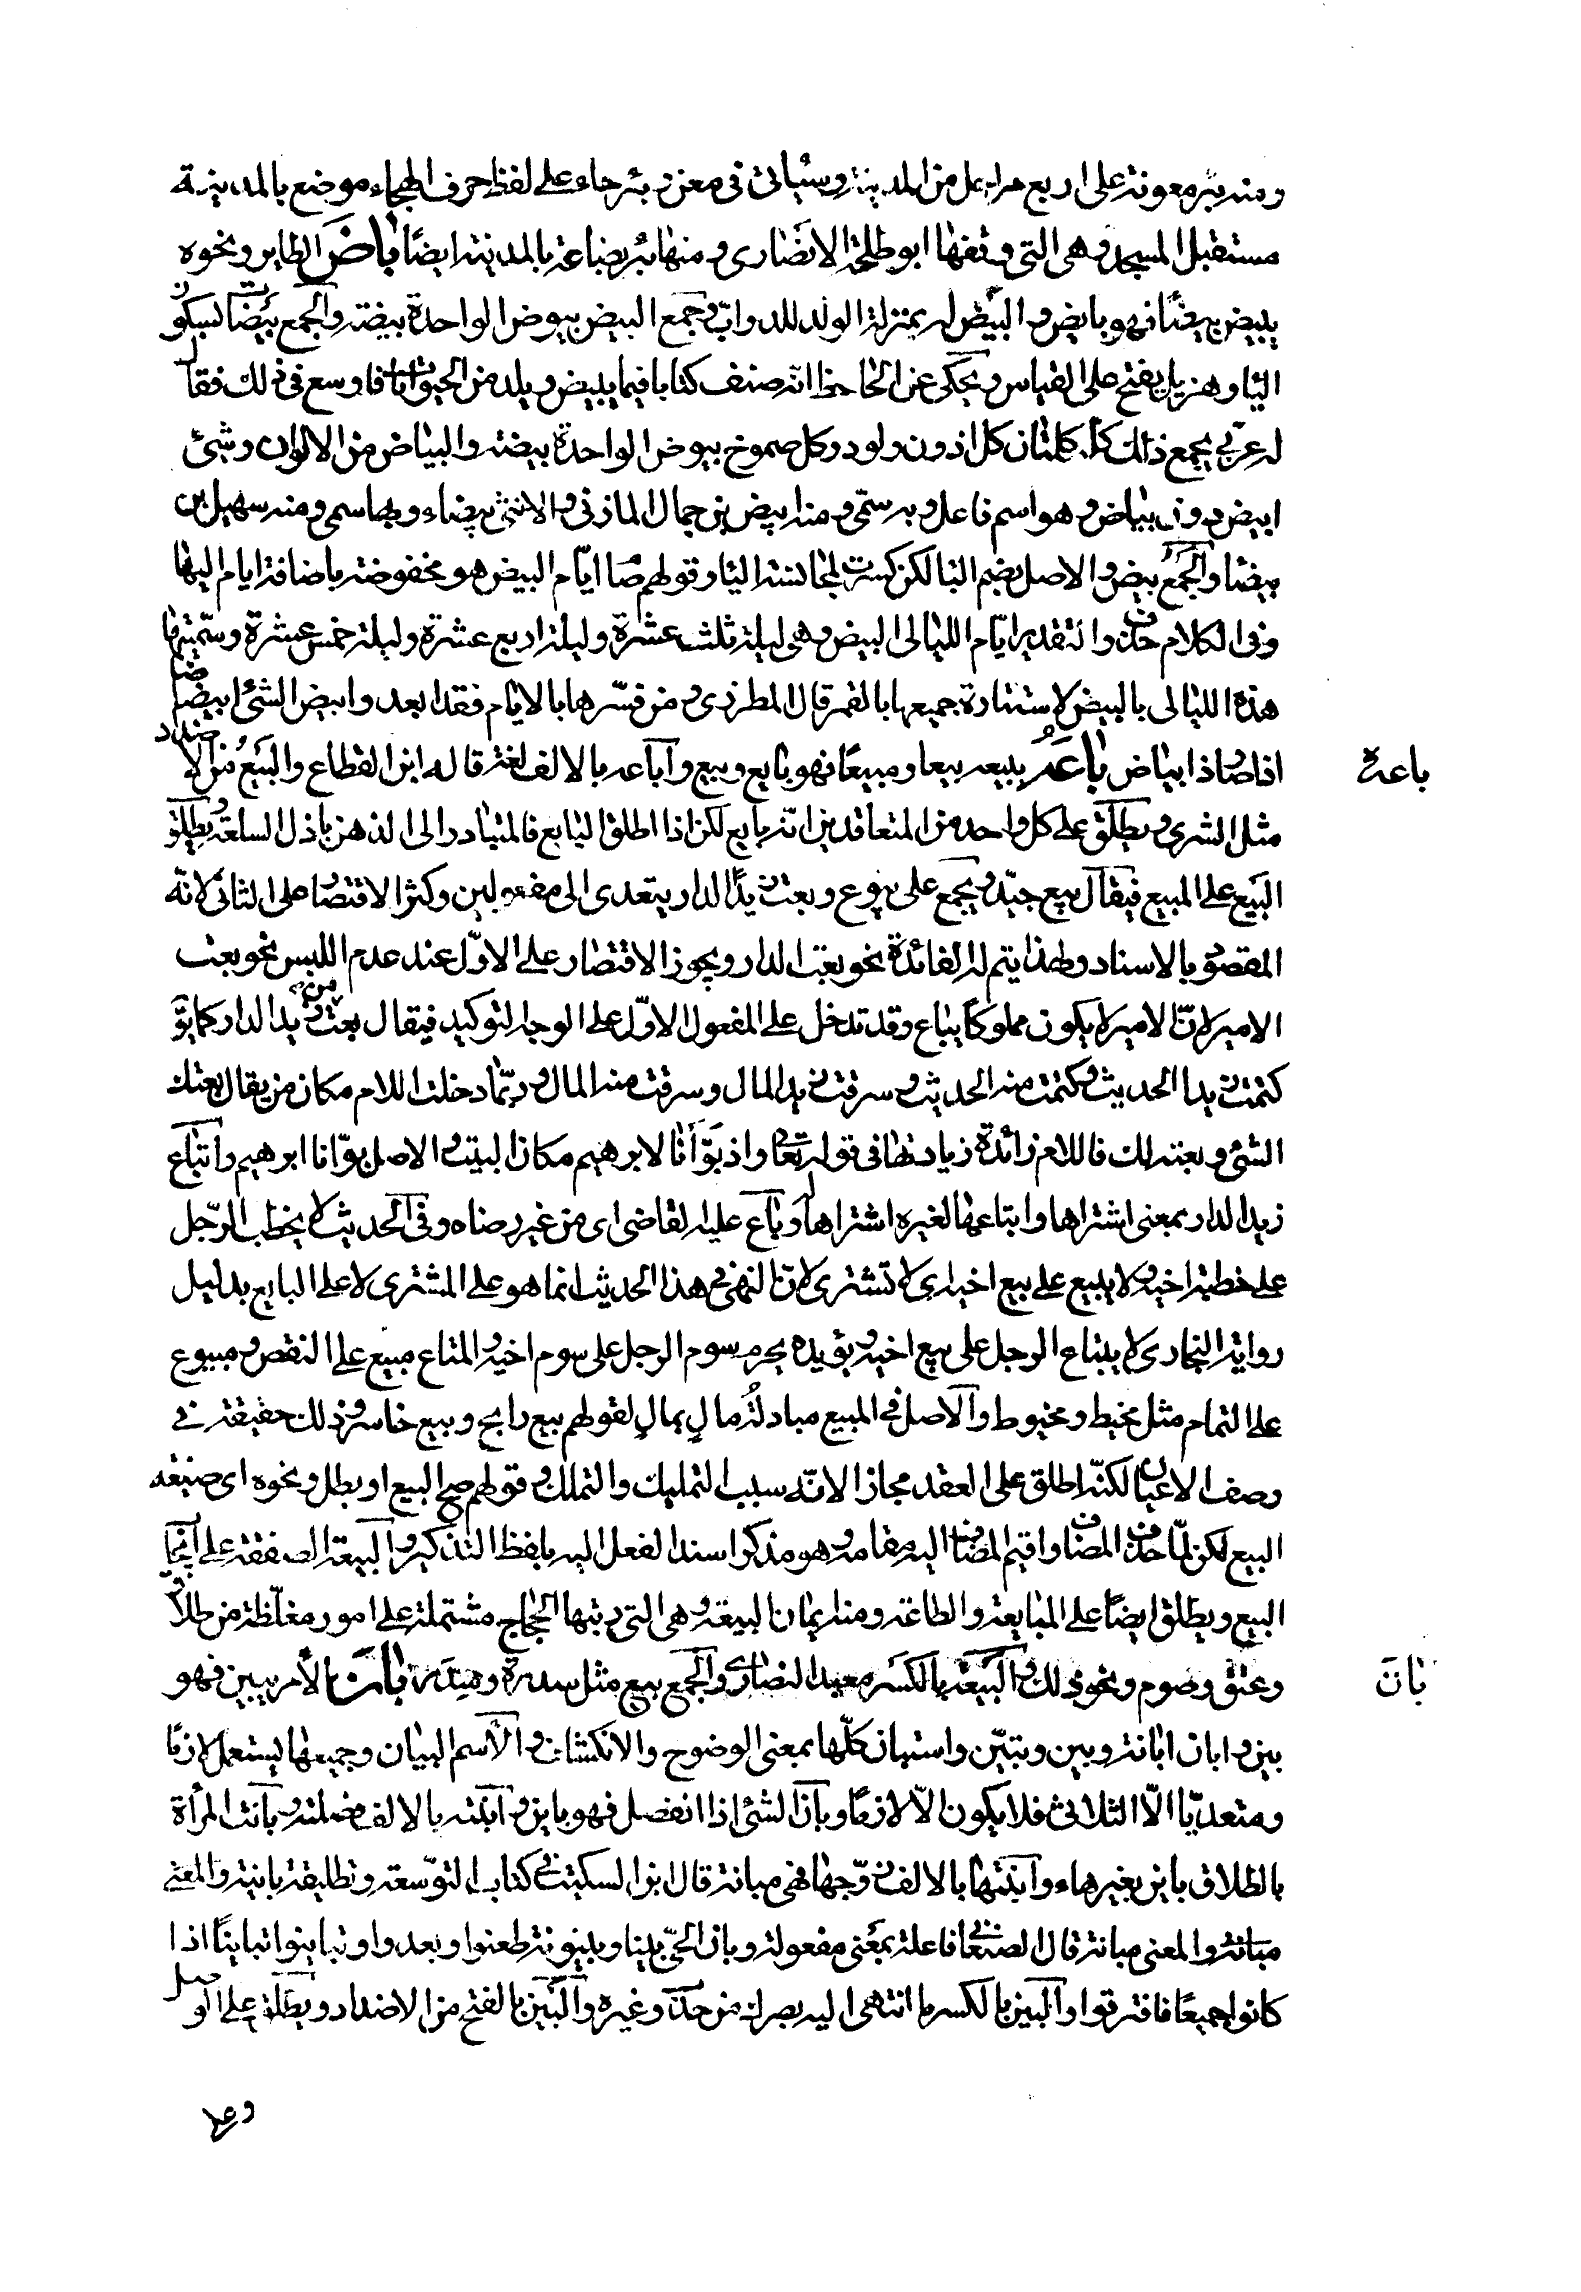 ومنه بئر معونة على اربع مراحل من المدينة وسيأتى فى معن وبئرحاء على لفظ حرف الهجاء موضع بالمدينة
مستقبل المسجد وهى التى وقفها ابو طلحة الانصارى ومنها بئر بضاعة بالمدينة ايضًا بَاضَ الطاير ونحوه
يبيض بيضًا فهو بايض والبيض له بمنزلة الولد للدواب وجمع البيض بيوض الواحدة بيضة والجمع بيضات بسكون
اليا وهذيل يفتح على القياس ويحكى عن الجاحظ انه صنف كتابا فيما يبيض ويلد من الحيوانات فاوسع فى ذلك فقال
له عربى يجمع ذلك كله كلمتان كل اذون ولود وكل صموخ بيوض الواحدة بيضة والبياض من الالوان وشئ
ابيض ذو بياض وهو اسم فاعل وبه سمّى ومنه ابيض بن حمال المازنى والانثى بيضاء وبها سمى ومنه سهيل بن
بيضا والجمع بيض والاصل بضم البا لكن كسرت لمجانسة اليا وقولهم صام ايّام البيض هو مخفوضة باضافة ايام اليها
وفى الكلام حذف والتقدير ايّام الليالى البيض وهى ليلة ثلث عشرة وليلة اربع عشرة وليلة خمس عشرة وسمّيت
هذه الليالى بالبيض لاستنارة جميعها بالقمر قال المطرزى ومن فسّرها بالايام فقد ابعد وابيض الشئ ابيضاضا
باعه
اذا صار ذا بياض بَاعَهُ يبيعه بيعا ومبيعًا فهو بايع وبيع وآباعه بالالف لغة قاله ابن القطاع والبَيْعُ من الاضداد
مثل الشرى ويطلق على كل واحد من المتعاقدين انّه بايع لكن اذا اطلق البايع فالمتبادر الى الذهن باذل السلعة ويطلق
البَيع على المبيع فيقال بيع جيّد ويجمع على بيوع وبعت زيدًا الدار يتعدى الى مفعولين وكثر الاقتصار على الثانى لانّه
المقصود بالاسناد ولهذا يتم له الفائدة نحو بعت الدار ويجوز الاقتصار على الاوّل عند عدم اللبس نحو بعت
الامير لانّ الامير لا يكون مملوكًا يباع وقد تدخل من على المفعول الاوّل على الوجه التوكيد فيقال بعت من زيد الدار كما يق
كتمت زيدا الحديث وكتمت منه الحديث وسرقت زيد المال وسرقت منه المال وربّما دخلت اللام مكان من يقال بعتك
الشئ وبعته لك فاللام زائدة زيادتها فى قوله تعالى واذ بوّأنا لابرهيم مكان البيت والاصل بوّانا ابرهيم وابتاع
زيد الدار بمعنى اشتراها وابتاعها لغيره اشتراها له وباع عليه القاضى اى من غير رضاه وفى الحديث لا يخطب الرّجل
على خطبة اخيه ولا يبيع على بيع اخيه اى لا تشترى لانّ النهى فى هذا الحديث انما هو على المشترى لا على البايع بدليل
رواية البخارى لا يبتاع الرجل على بيع اخيه ويؤيده يحرم سوم الرجل على سوم اخيه والمتاع مبيع على النقص ومبيوع
على التمام مثل مخيط ومخيوط والاصل فى المبيع مبادلة مالٍ بمالٍ لقولهم بيع رابح وبيع خاسر وذلك حقيقة فى
وصف الاعيان لكنّه اطلق على العقد مجازا لانّه سبب التمليك والتملك وقولهم صح البيع او بطل ونحوه اى صيغة
البيع لكن لمّا حذف المضاف واقيم المضاف اليه مقامه وهو مذكر اسند الفعل اليه بلفظ التذكير والبيعة الصفقة على ايجاب
البيع ويطلق ايضًا على المبايعة والطاعة ومنه ايمان البيعة وهى التى رتبها الحجاج مشتملة على امور مغلّظة من طلاق
بَانَ
وعتق وصوم ونحو ذلك والبيعة بالكسر معبد النصارى والجمع بيع مثل سدرة وسدر بَانَ الأمر يبين فهو
بين وابان ابانة وبين وتبيّن واستبان كلّها بمعنى الوضوح والانكشاف والاسم البيان وجميعها يستعمل لازمًا
ومتعدّيّا الّا الثلاثى فلا يكون الّا لازمًا وبان الشئ اذا انفصل فهو باين وابنته بالالف فصلته وبانت المرأة
بالطلاق باين بغير هاء وآبنتها بالالف زوّجها فهى مبانة قال ابن السكيت فى كتاب التوسّعة وتطليقة باينة والمعنى
مبانة والمعنى مبانة قال الصنعانى فاعلة بمعنى مفعولة وبان الحىّ بينا وبينونة ظعنوا وبعدوا وتباينوا تباينًا اذا
كانوا جميعًا فافترقوا والبين بالكسر ما انتهى اليه بصرك من حدب وغيره والبَين بالفتح من الاضداد ويطلق على الوصل
وعلى